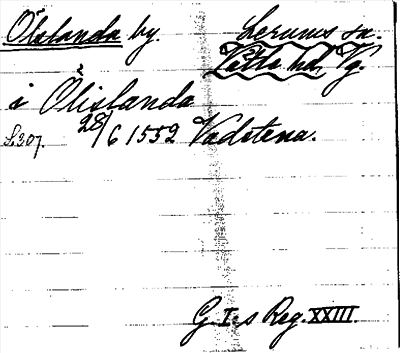 Ölslanda by. Lerums sn.
Vättle hd, Vg.
i Ölislanda
S.307. 28/6 1552 Vadstena.
G. I:s Reg. XXIII.